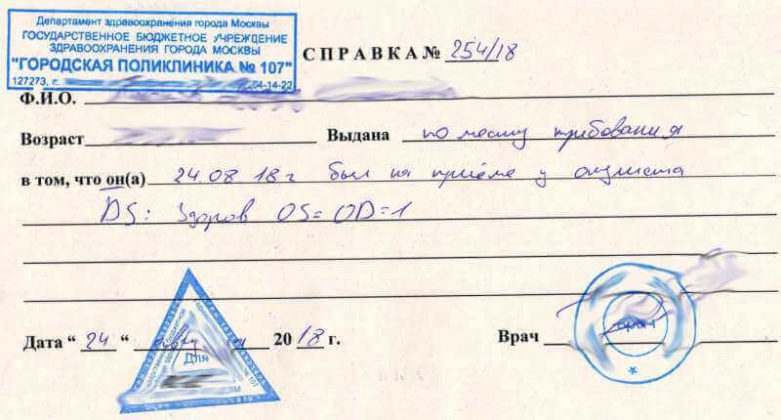 Департамент здравоохранения города Москвы
ГОСУДАРСТВЕННОЕ БЮДЖЕТНОЕ УЧРЕЖДЕНИЕ
ЗДРАВООХРАНЕНИЯ ГОРОДА МОСКВЫ
"ГОРОДСКАЯ ПОЛИКЛИНИКА № 107"
127273, г. 54-14-22
СПРАВКА № 254/18
Ф.И.О.
Возраст Выдана по месту требования
в том, что он(а) 24.08.18 г был на приёме у окулиста
DS: Здоров OS=OD=1
Дата "24" 2018 г. Врач
Для
врач
№ 107